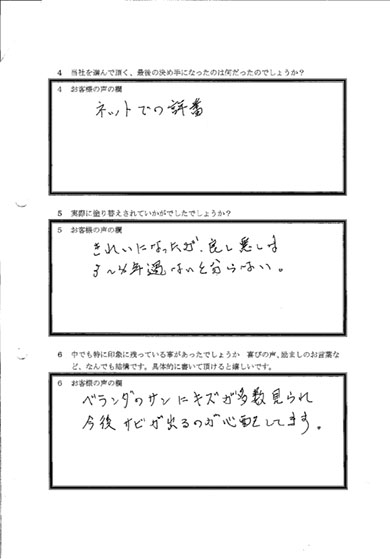 4 当社を選んで頂く、最後の決め手になったのは何だったのでしょうか？
4 お客様の声の欄
ネットでの評番
5 実際に塗り替えされていかがでしたでしょうか？
5 お客様の声の欄
きれいになったが、良し悪しは
3〜4年過ないと分らない。
6 中でも特に印象に残っている事があったでしょうか 喜びの声、励ましのお言葉な
ど、なんでも結構です。具体的に書いて頂けると嬉しいです。
6 お客様の声の欄
ベランダのサンにキズが多数見られ
今後サビが出るのが心配してます。